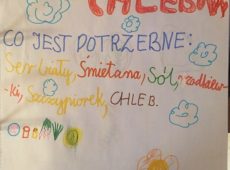 CO JEST POTRZEBNE:
Ser biały, Śmietana, Sól, rzodkiew-
ki, Szczypiorek, CHLEB.